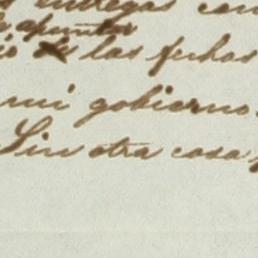 entregas con
apuntar
las fechas
mi gobierno.
Sin otra cosa